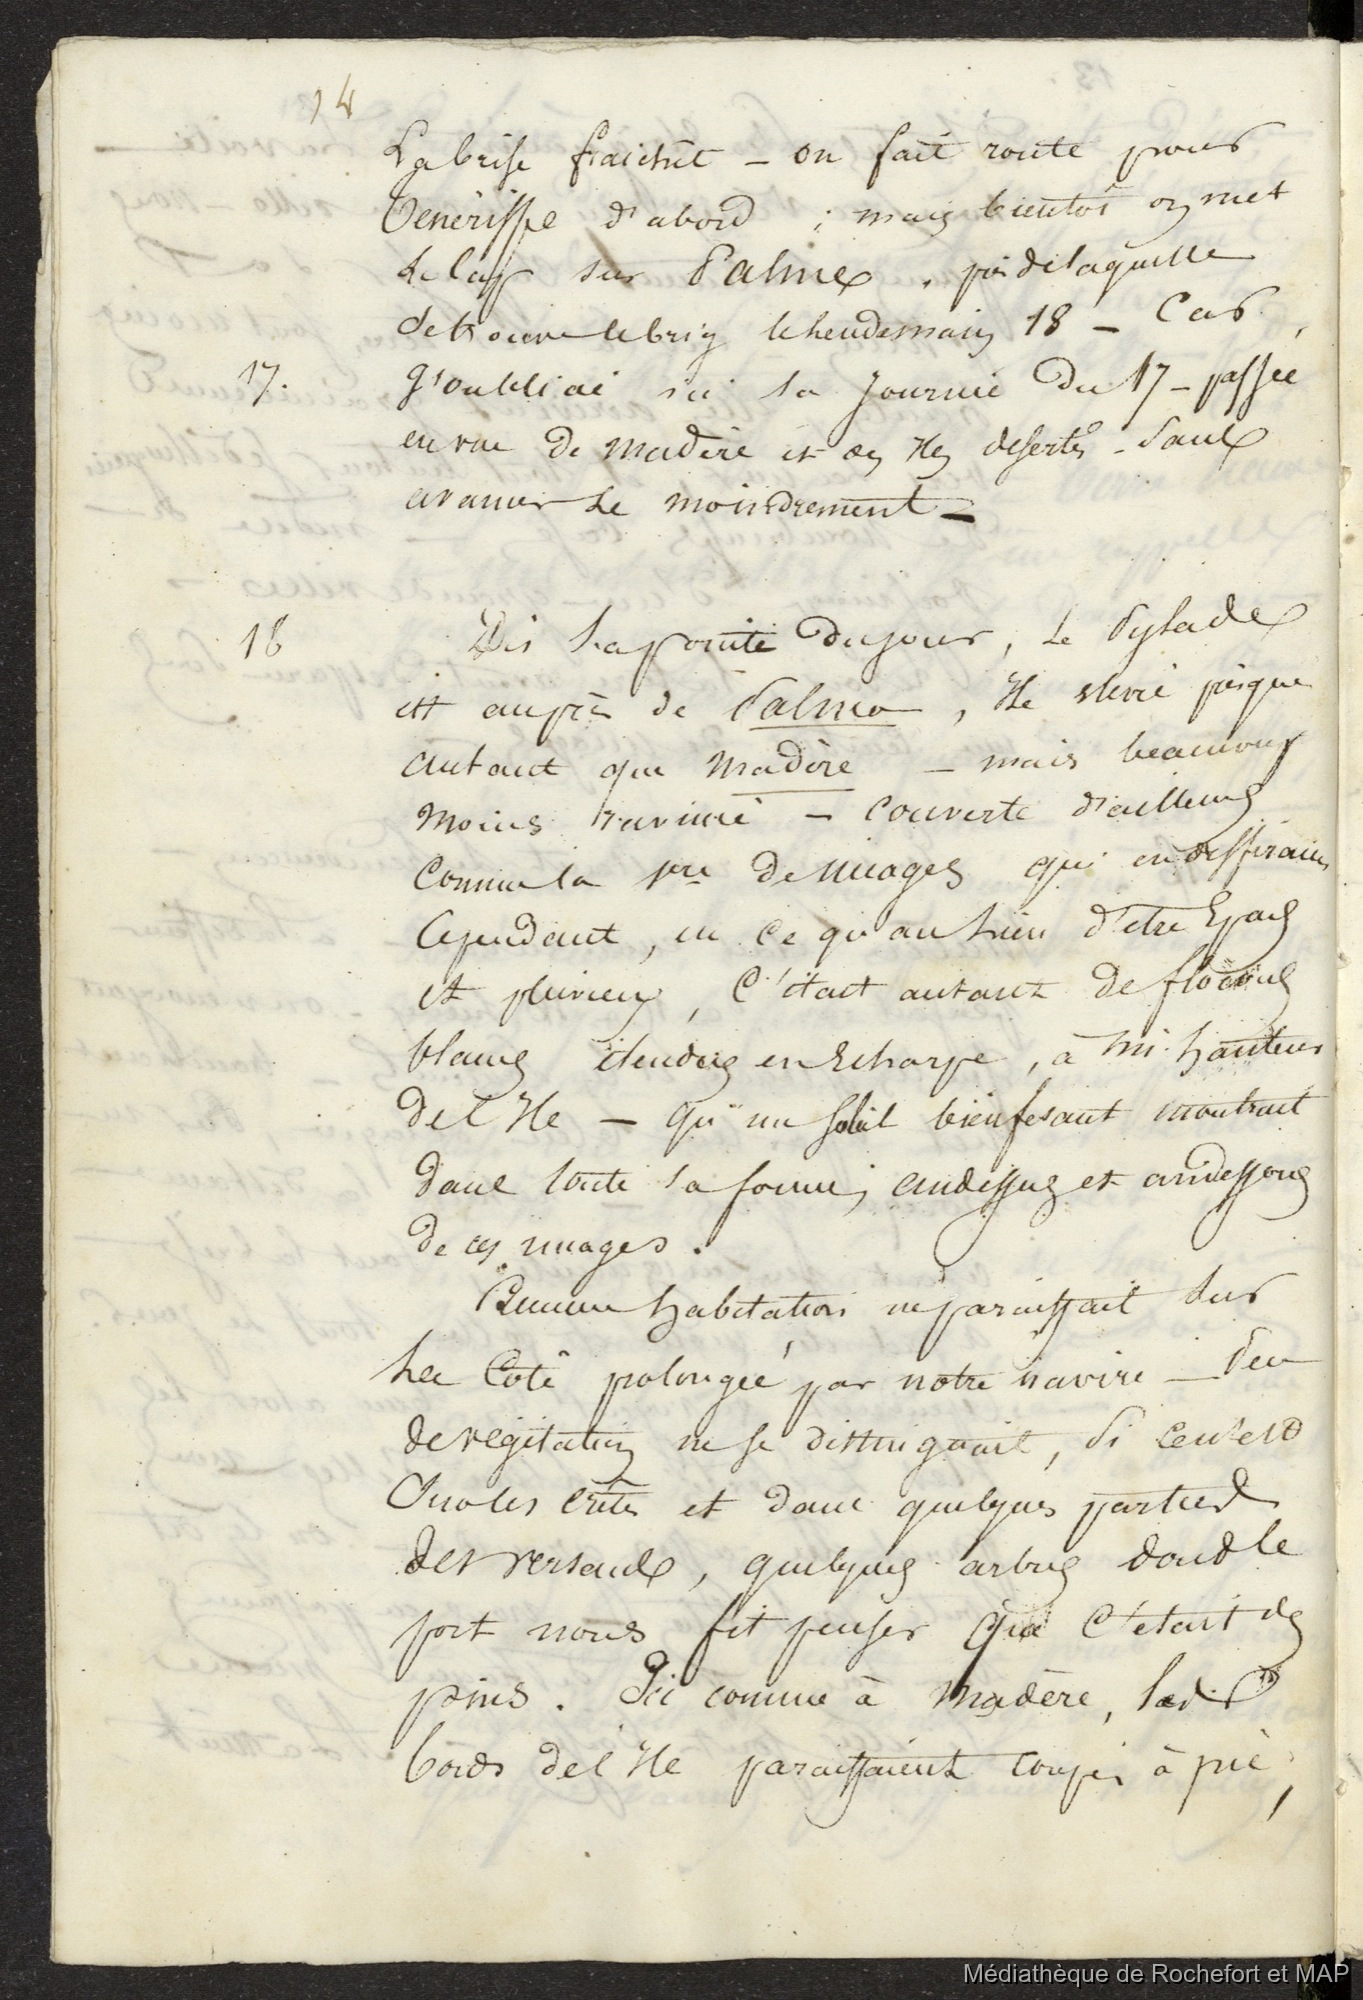 14
La brise fraichit – on fait route pour
Ténériffe d'abord ; mais bientôt on met
le cap sur Palma, près de laquelle
se trouve le brig le lendemain 18 – Car
17. J'oubliai ici la journée du 17 – passée
en vue de Madère et des Iles désertes – sans
avancer le moindrement –
18 Dès la pointe du jour, le Pylade
est auprès de Palma, Ile élevée presque
autant que Madère – mais beaucoup
moins ravinée – couverte d'ailleurs
comme la 1ere de nuages qui en différaient
Cependant, en ce qu'au lieu d'etre épais
et pluvieux, C'était autant de flocons
blancs étendus en Echarpe, à mi-hauteur
de l'Ile – qu'un soleil bienfesant montrait
dans toute sa forme, au dessus et au dessous
de ces nuages.
Aucune habitation ne paraissait sur
la Côte prolongée par notre navire – Peu
de végétation ne se distinguait, si ce n'est
sur les crètes et dans quelques parties
des versants, quelques arbres dont le
port nous fit penser que C'était des
pins. Ici comme à Madère, les
bords de l'Ile paraissaient coupés à pic,
Médiathèque de Rochefort et MAP